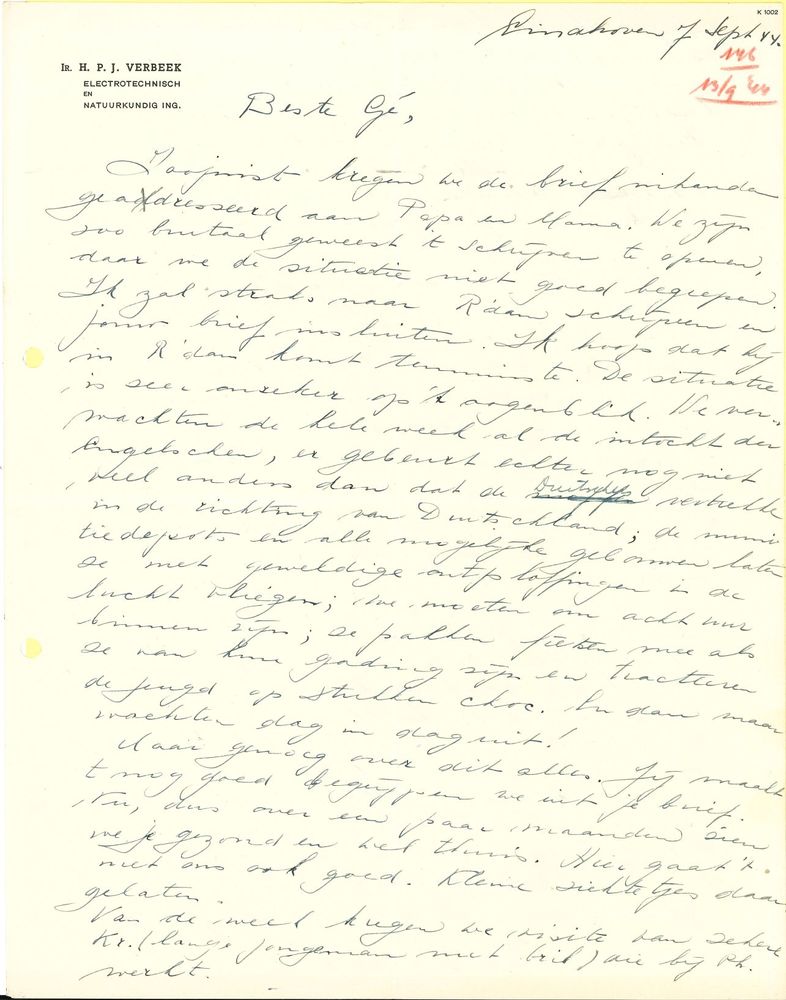 K 1002
Eindhoven 7 Sept 44.
146
13/9 44
IR. H. P. J. VERBEEK
ELECTROTECHNISCH
EN
NATUURKUNDIG ING.
Beste Gé,
Zoojuist kregen we de brief inhanden
geaddresseerd aan Papa en Mama. We zijn
zoo brutaal geweest 't schrijven te openen,
daar we de situatie niet goed begrepen.
Ik zal straks naar R'dam schrijven en
jouw brief insluiten. Ik hoop dat hij
in R'dam komt tenminste. De situatie
is zeer onzeker op 't oogenblik. We ver-
wachten de hele week al de intocht der
Engelschen, er gebeurt echter nog niet
veel anders dan dat de Duitschers vertrekke
in de richting van Duitschland; de muni
tiedepots en alle mogelijke gebouwen laten
ze met geweldige ontploffingen in de
lucht vliegen; we moeten om acht uur
binnen zijn; ze pakken fietsen mee als
ze van hun gading zijn en tracteren
de jeugd op stukken choc. En dan maar
wachten dag in dag uit!
Maar genoeg over dit alles. Jij maakt
't nog goed begrijpen we uit je brief.
Nu, dus over een paar maanden zien
we je gezond en wel thuis. Hier gaat 't
met ons ook goed. Kleine ziektetjes daar
gelaten.
Van de week kregen we visite van zekere
Kr. (lange jongeman met bril) die bij Ph.
werkt.